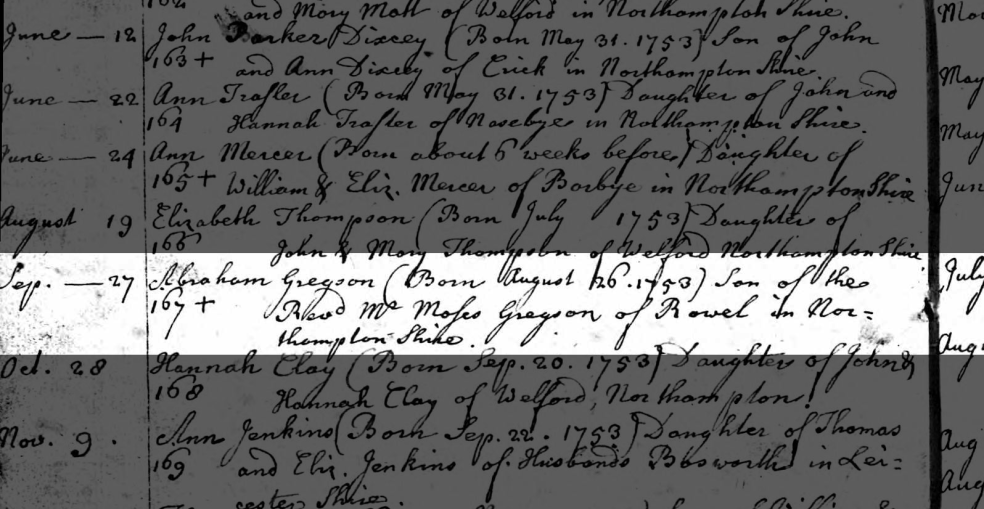 and Mary Mott of Welford in Northampton Shire.
June — 12 John Barker Dixey (Born May 31. 1753) Son of John
163+ and Ann Dixey of Crick in Northampton Shire.
June — 22 Ann Trasler (Born May 31. 1753) Daughter of John and
164 Hannah Trasler of Nasebye in Northampton Shire.
June — 24 Ann Mercer (Born about 6 weeks before) Daughter of
165+ William & Eliz. Mercer of Borbye in Northampton Shire
August 19 Elizabeth Thompson (Born July 1753) Daughter of
166 John & Mary Thompson of Welford Northampton Shire.
Sep. — 27 Abraham Gregson (Born August 26. 1753) Son of the
167+ Revd Mr Moses Gregson of Rowel in Nor=
thampton Shire.
Oct. 28 Hannah Clay (Born Sep. 20. 1753) Daughter of John &
168 Hannah Clay of Welford, Northampton.
Nov. 9. Ann Jenkins (Born Sep. 22. 1753) Daughter of Thomas
169 and Eliz. Jenkins of Husbands Bosworth in Lei=
cester Shire.
May
May
Jun
July
Aug
Aug
Aug